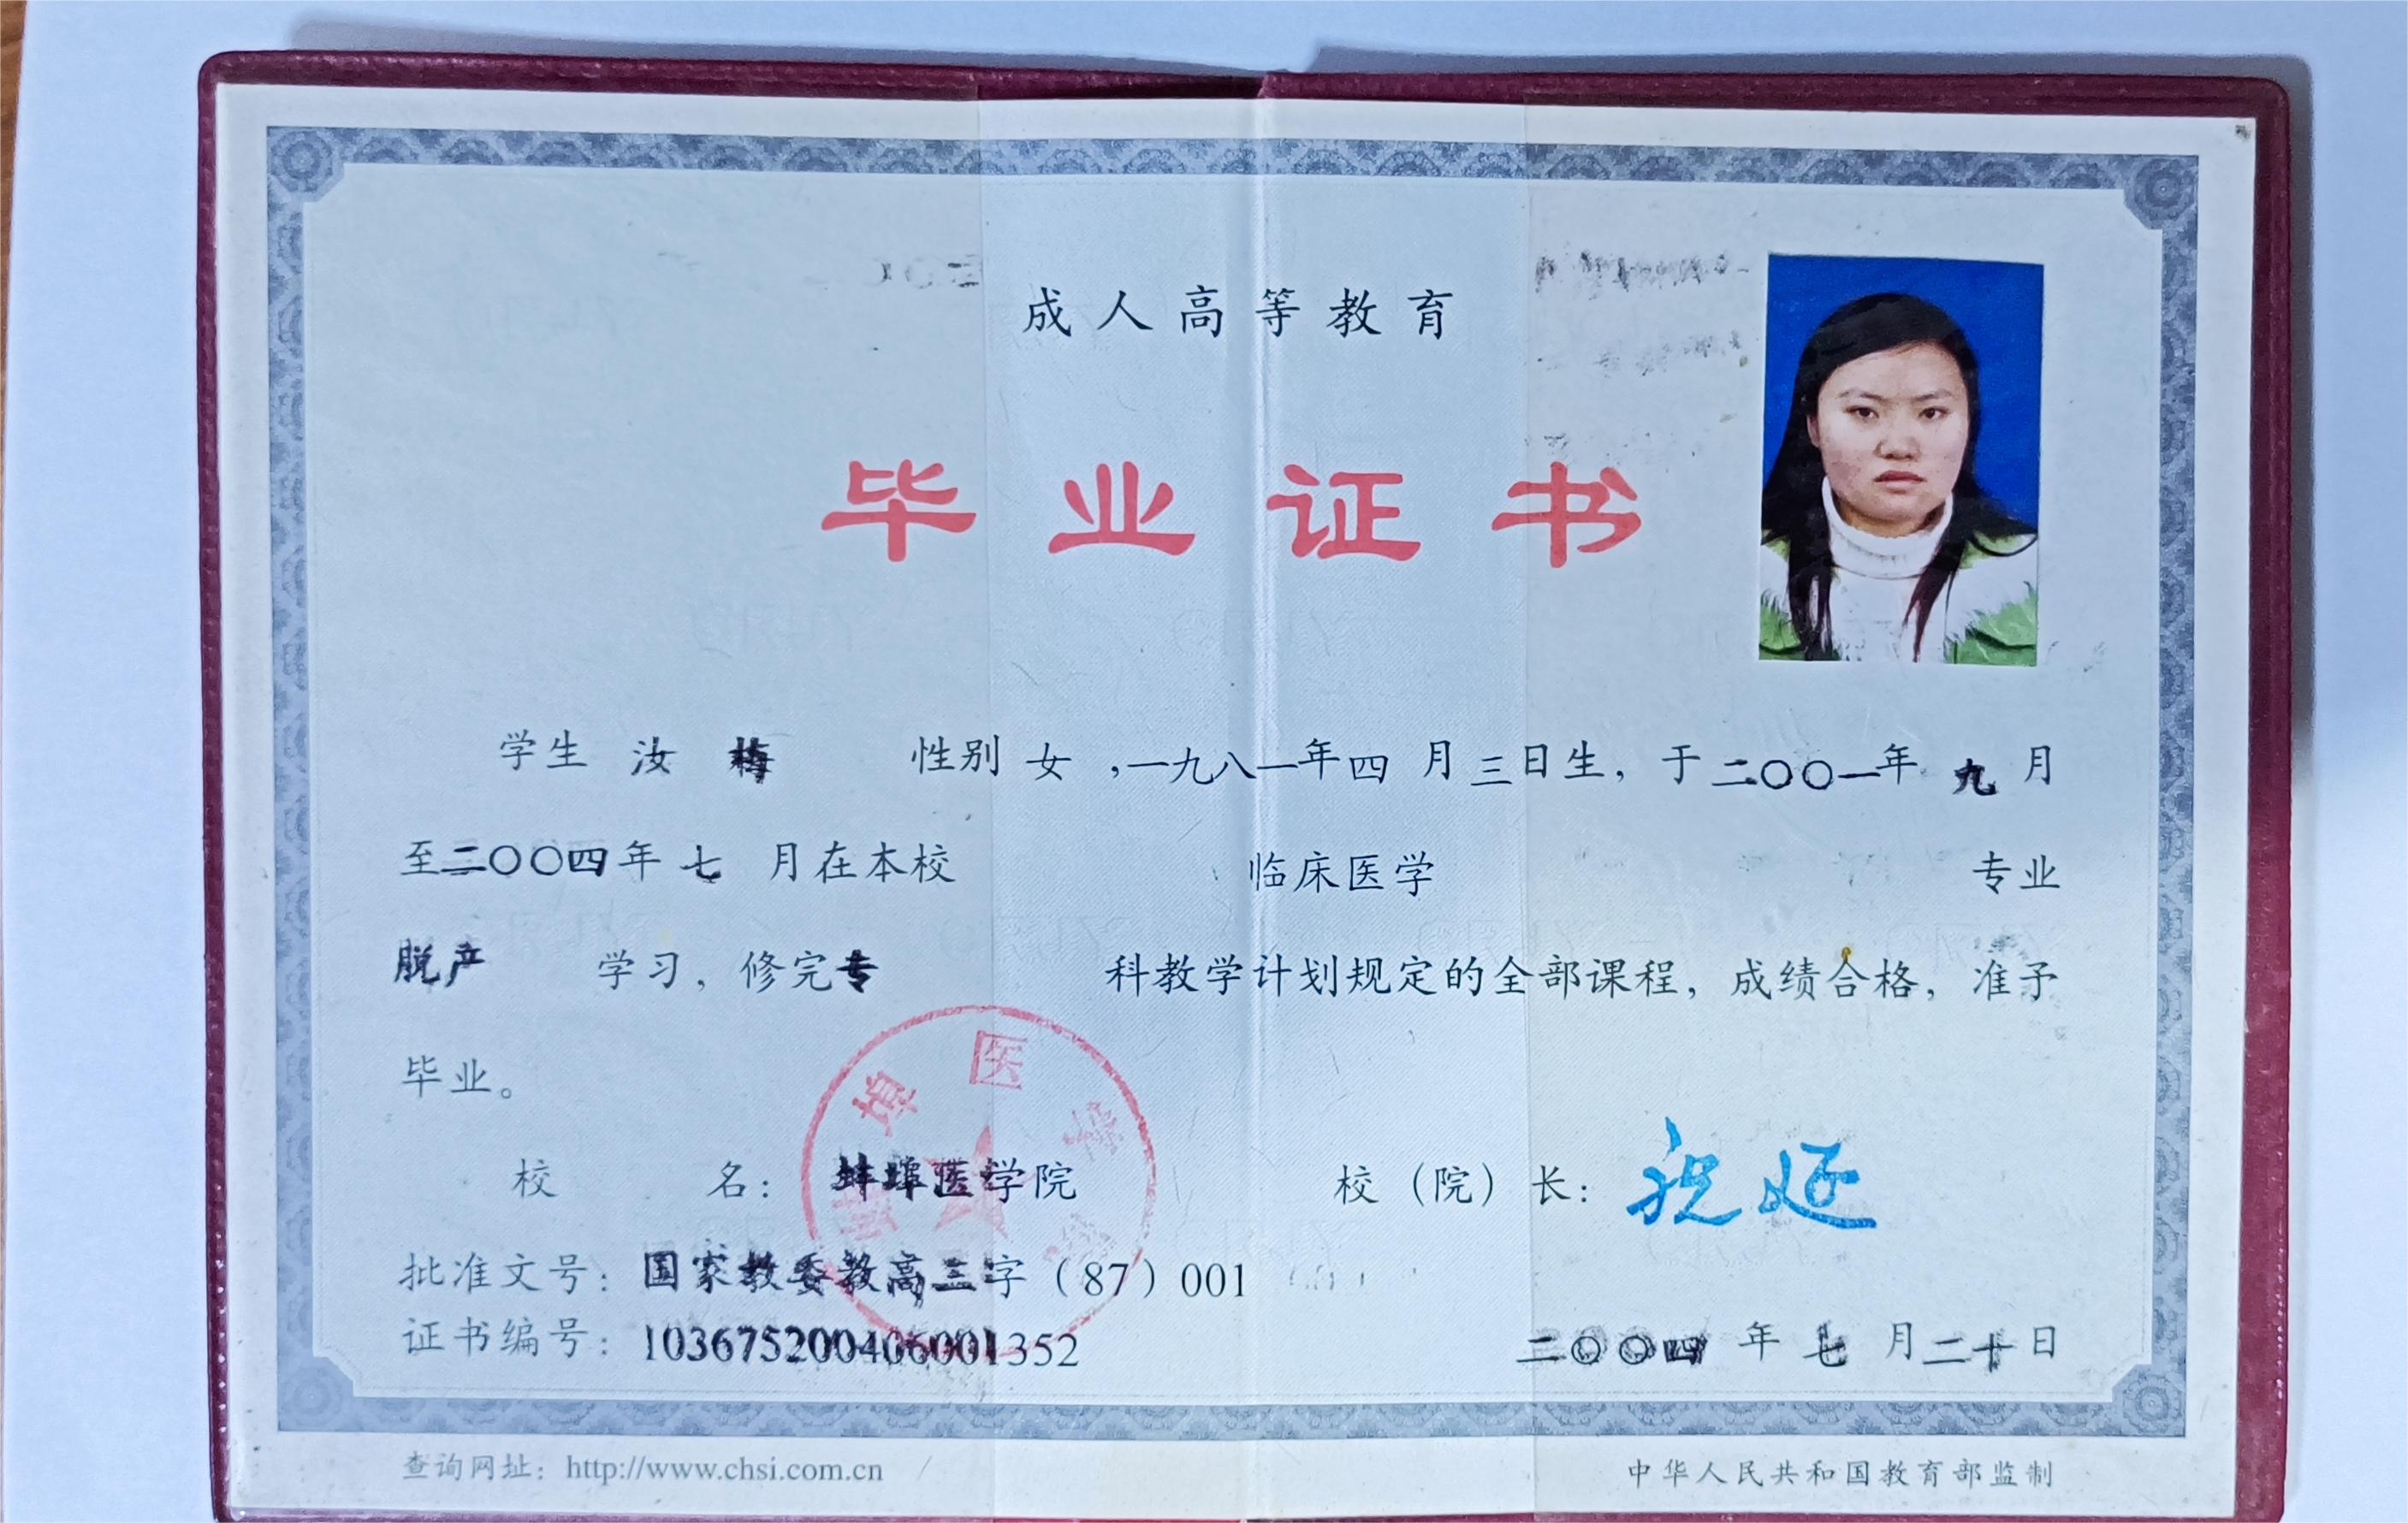 成人高等教育
毕业证书
学生 汝 梅 性别 女 ，一九八一年四 月 三日生，于二〇〇一年 九 月
至二〇〇四年 七 月在本校 临床医学 专业
脱产 学习，修完专 科教学计划规定的全部课程，成绩合格，准予
毕业。
校 名：蚌埠医学院 校（院）长：祝延
批准文号：国家教委教高三字（87）001
证书编号：103675200406001352 二〇〇四 年 七 月二十日
蚌埠医学院
查询网址：http://www.chsi.com.cn 中华人民共和国教育部监制